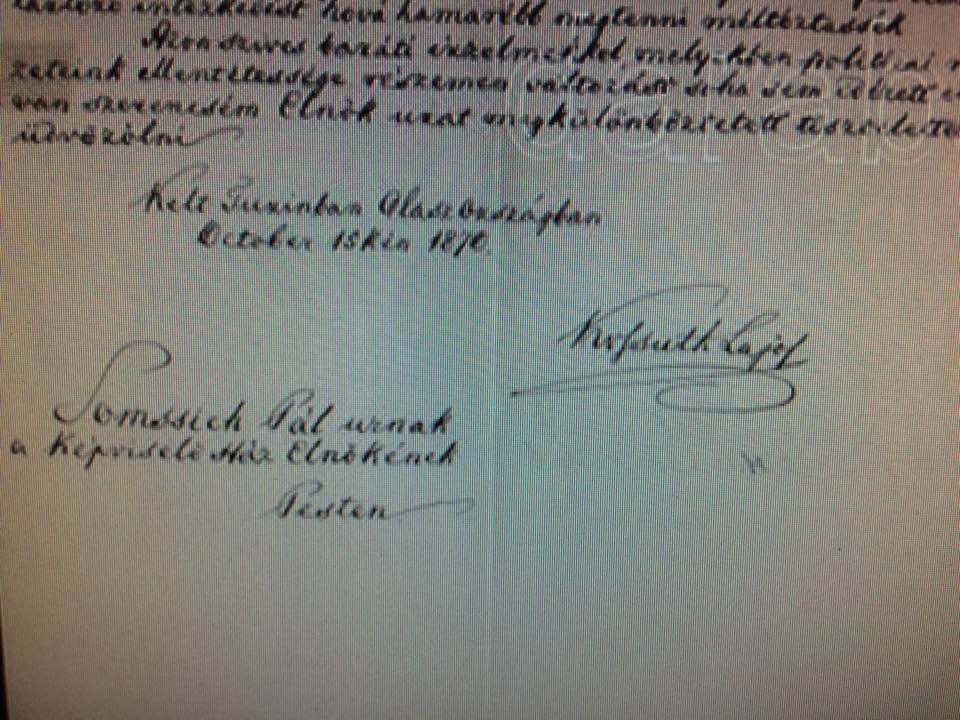 intézkedést hová hamarább megtenni méltóztassék
Azon szives baráti érzelmekkel, melyekben politicai
nézeteink ellentétessége részemen változást soha sem idézett
van szerencsém Elnök urat megkülönböztetett tisztelettel
üdvözölni
Kelt Turinban Olaszországban
October 15kén 1870.
Kossuth Lajos
Somssich Pál urnak
a Képviselő Ház Elnökének
Pesten